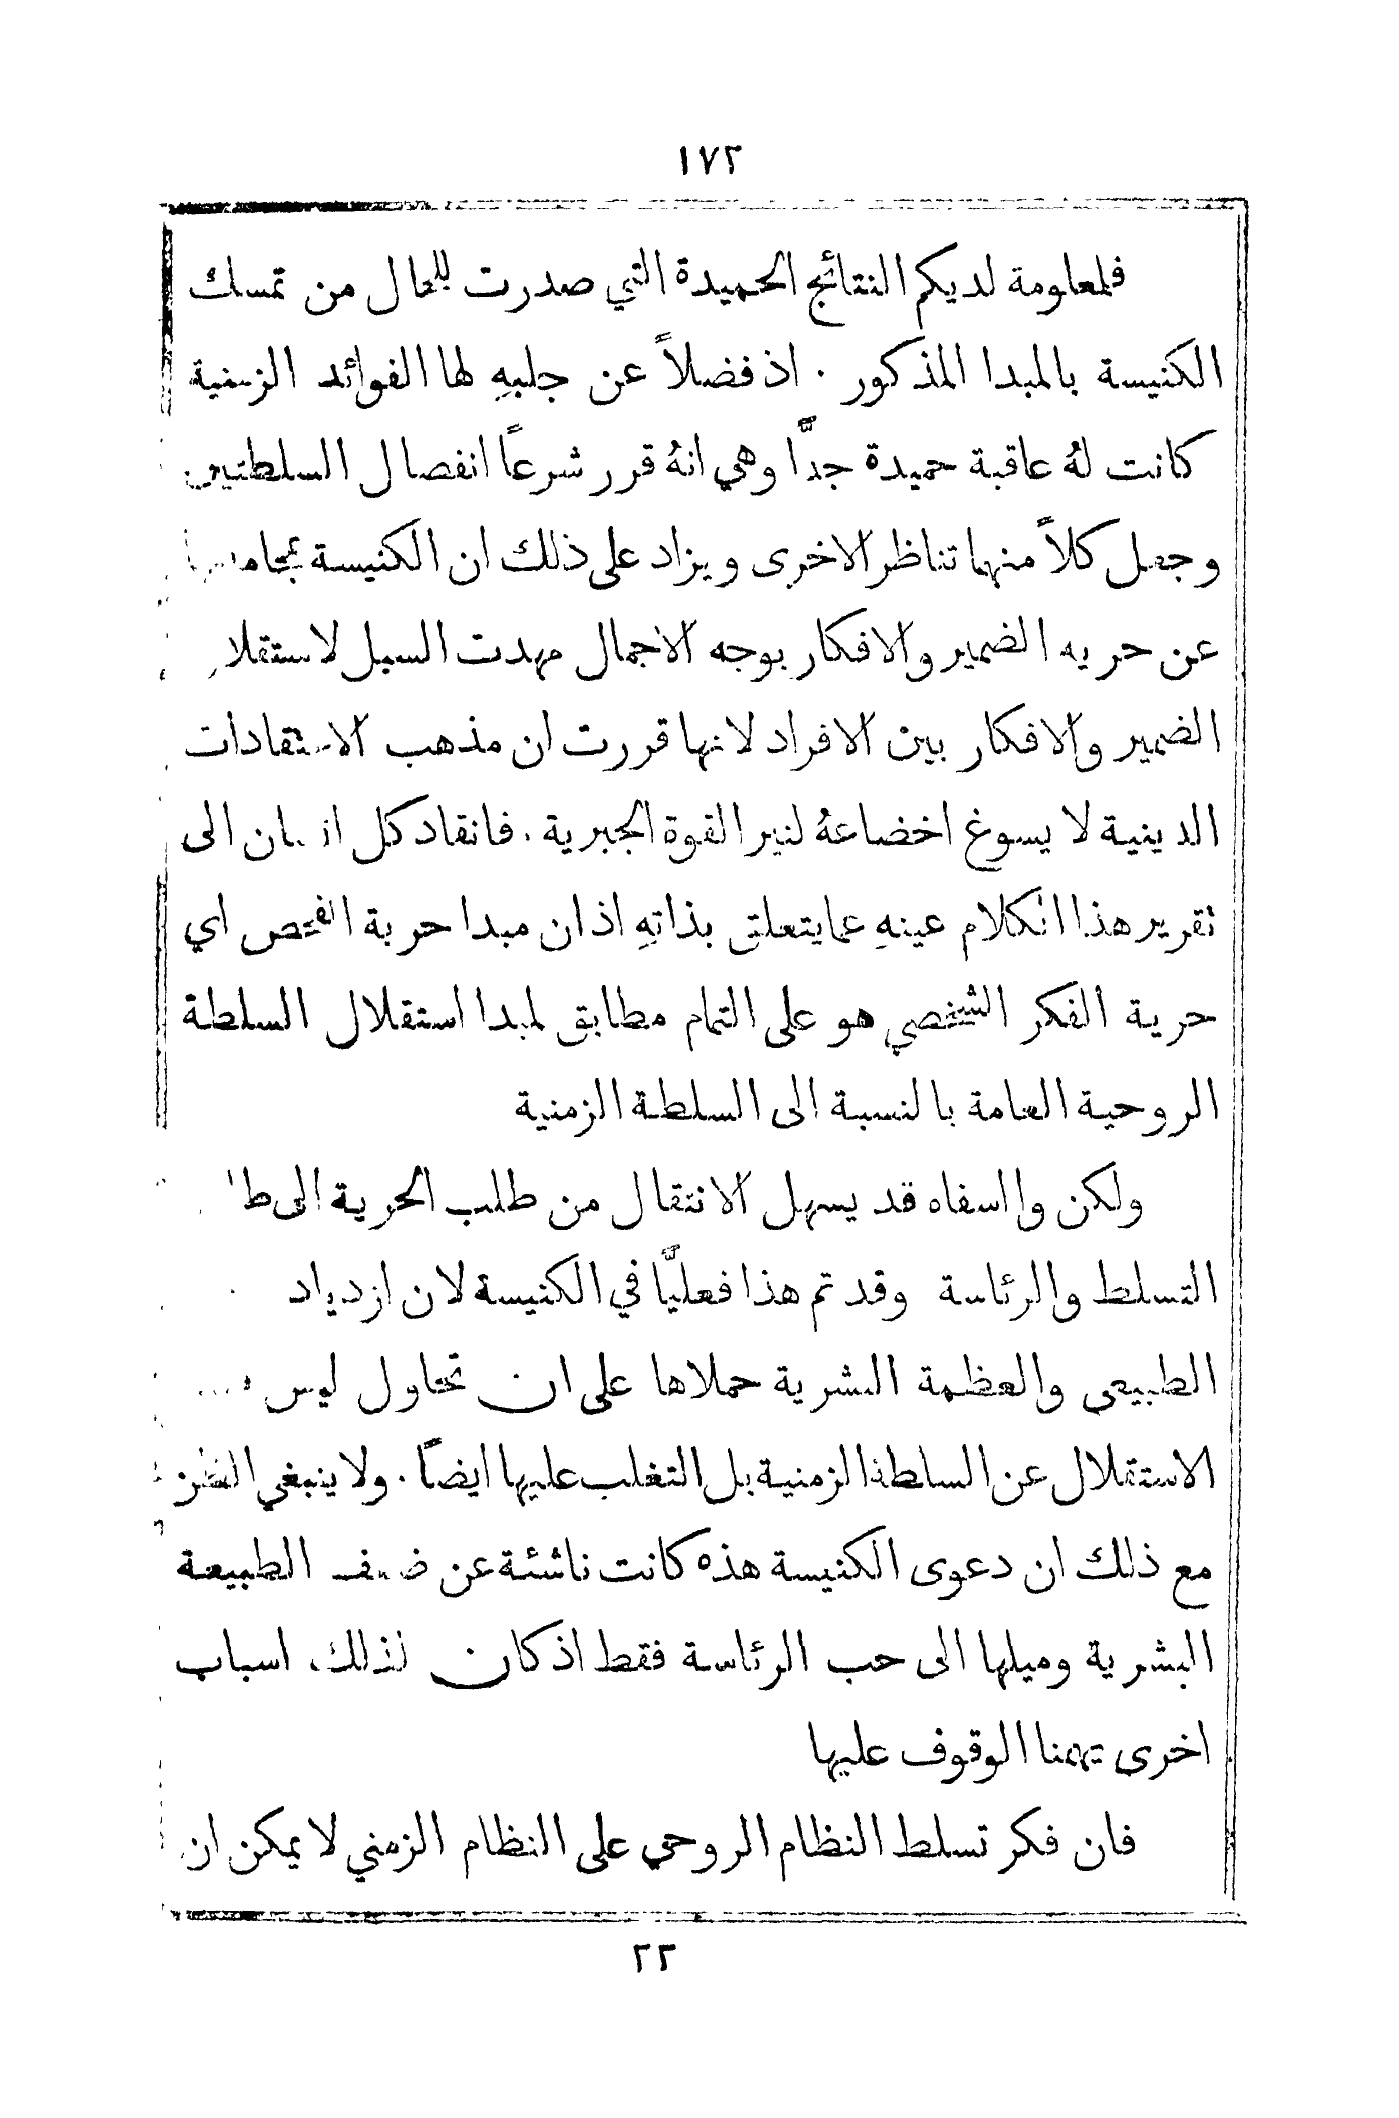 ١٧٣
فلمعلومة لديكم النتائج الحميدة التي صدرت للحال من تمسك
الكنيسة بالمبدا المذكور ٠ اذ فضلاً عن جلبهِ لها الفوائد الزمنية
كانت لهُ عاقبة حميدة جدًّا وهي انهُ قرر شرعًا انفصال السلطتين
وجعل كلاً منهما تناظر الاخرى ويزاد على ذلك ان الكنيسة
عن حرية الضمير والافكار بوجه الاجمال مهدت السبل
الضمير والافكار بين الافراد لانها قررت ان مذهب الاعتقادات
الدينية لا يسوغ اخضاعهُ لنير القوة الجبرية ٠ فانقاد كل انسان الى
تقرير هذا الكلام عينهِ عما يتعلق بذاتهِ اذ ان مبدا حرية الفحص اي
حرية الفكر الشخصي هو على التمام مطابق لمبدا استقلال السلطة
الروحية العامة بالنسبة الى السلطة الزمنية
ولكن وا اسفاه قد يسهل الانتقال من طلب الحرية الى
التسلط والرئاسة وقد تم هذا فعليًّا في الكنيسة لان ازدياد
الطبيعي والعظمة البشرية حملاها على ان تحاول ليس
الاستقلال عن السلطة الزمنية بل التغلب عليها ايضًا ٠ ولا ينبغي الظن
مع ذلك ان دعوى الكنيسة هذه كانت ناشئة عن ضعف الطبيعة
البشرية وميلها الى حب الرئاسة فقط اذ كان لذلك اسباب
اخرى يهمنا الوقوف عليها
فان فكر تسلط النظام الروحي على النظام الزمني لا يمكن ان
٢٣